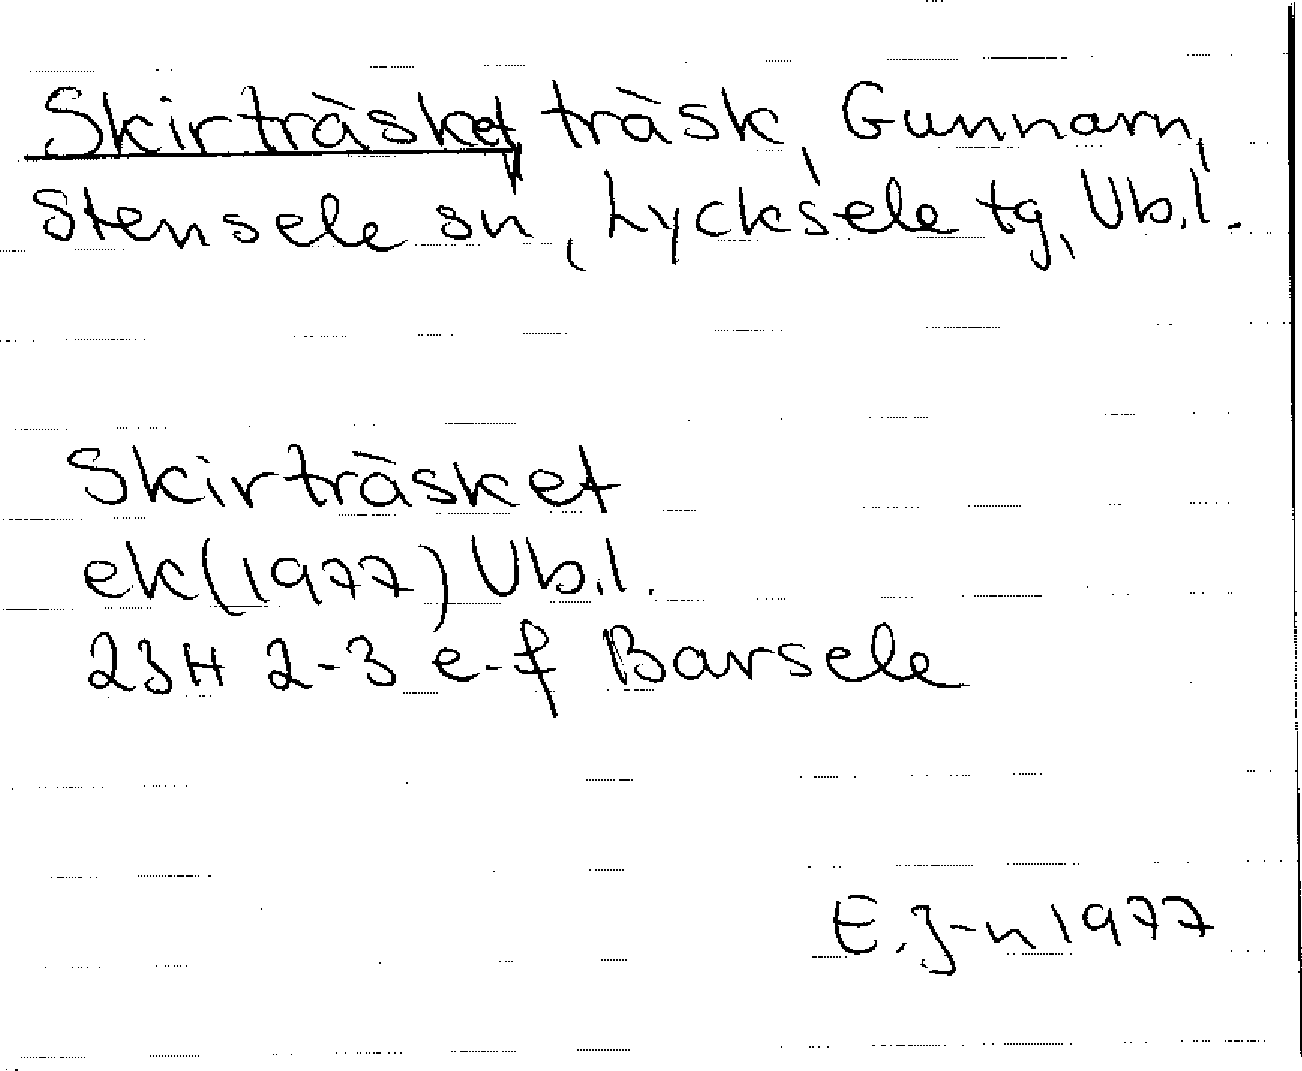 Skirträsket, träsk, Gunnarn,
Stensele sn, Lycksele tg, Vb.l.
Skirträsket
ek (1977) Vb.l.
23H 2-3 e-f Barsele
E.J-n 1977